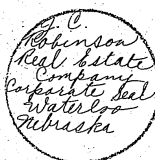 J C
Robinson
Real Estate
Company
Corporate Seal
Waterloo
Nebraska